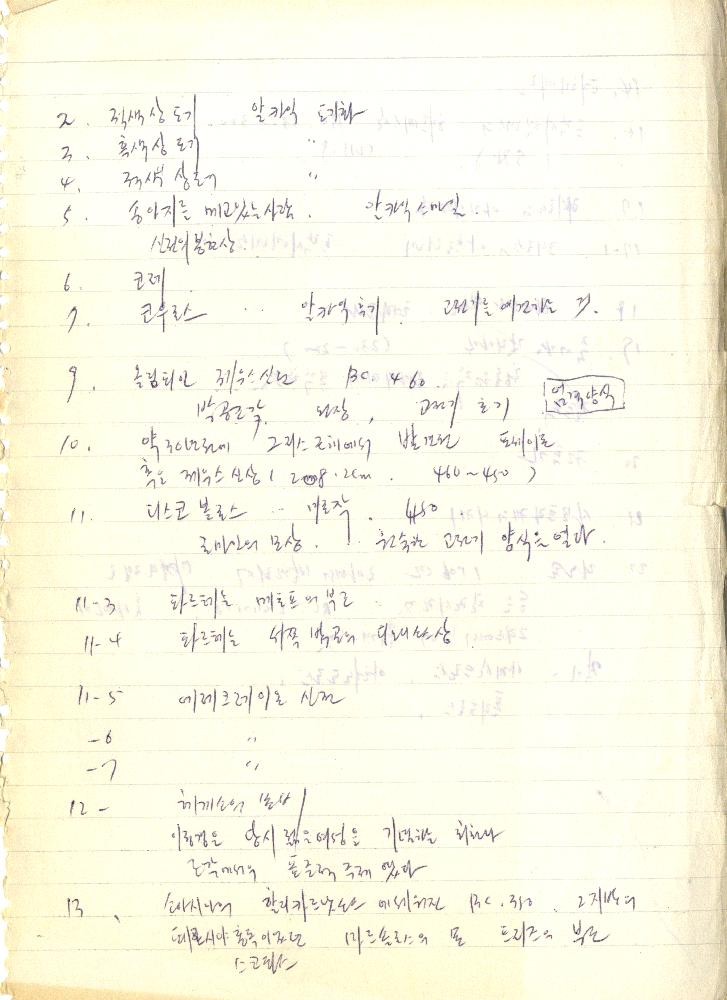 2. 적색상 토기 알카익 도기화
3. 흑색상 토기 〃
4. 적색 상토기 〃
5. 송아지를 메고있는사람. 알카익 스마일.
신전의 봉헌상.
6. 코레.
7. 코우로스 ·· 알카익 후기. 고전기를 예견하는 것.
9. 올림피안 제우스신전 BC 460
박공조각. 고전기 초기 엄격양식
10. 약 그리스 근해에서 발견된 포세이돈
혹은 제우스신상 ( 2.08.2cm. 460~450 )
11. 디스코 볼로스 ·· 미론작. 450.
로마인의 모상. 고전기 양식을 연다.
11-3 파르테논 메토프의 부조
11-4 파르테논 서쪽 박공의
11-5 에레크레이온 신전
-6 〃
-7 〃
12- 헤게소의 묘비
당시 젊은여성을 기념하는
조각에서의 주제 였다
13. 소아시아의 할리카르낫소스 BC. 350.
마르솔로스의 묘 프리즈의 부조
스코파스